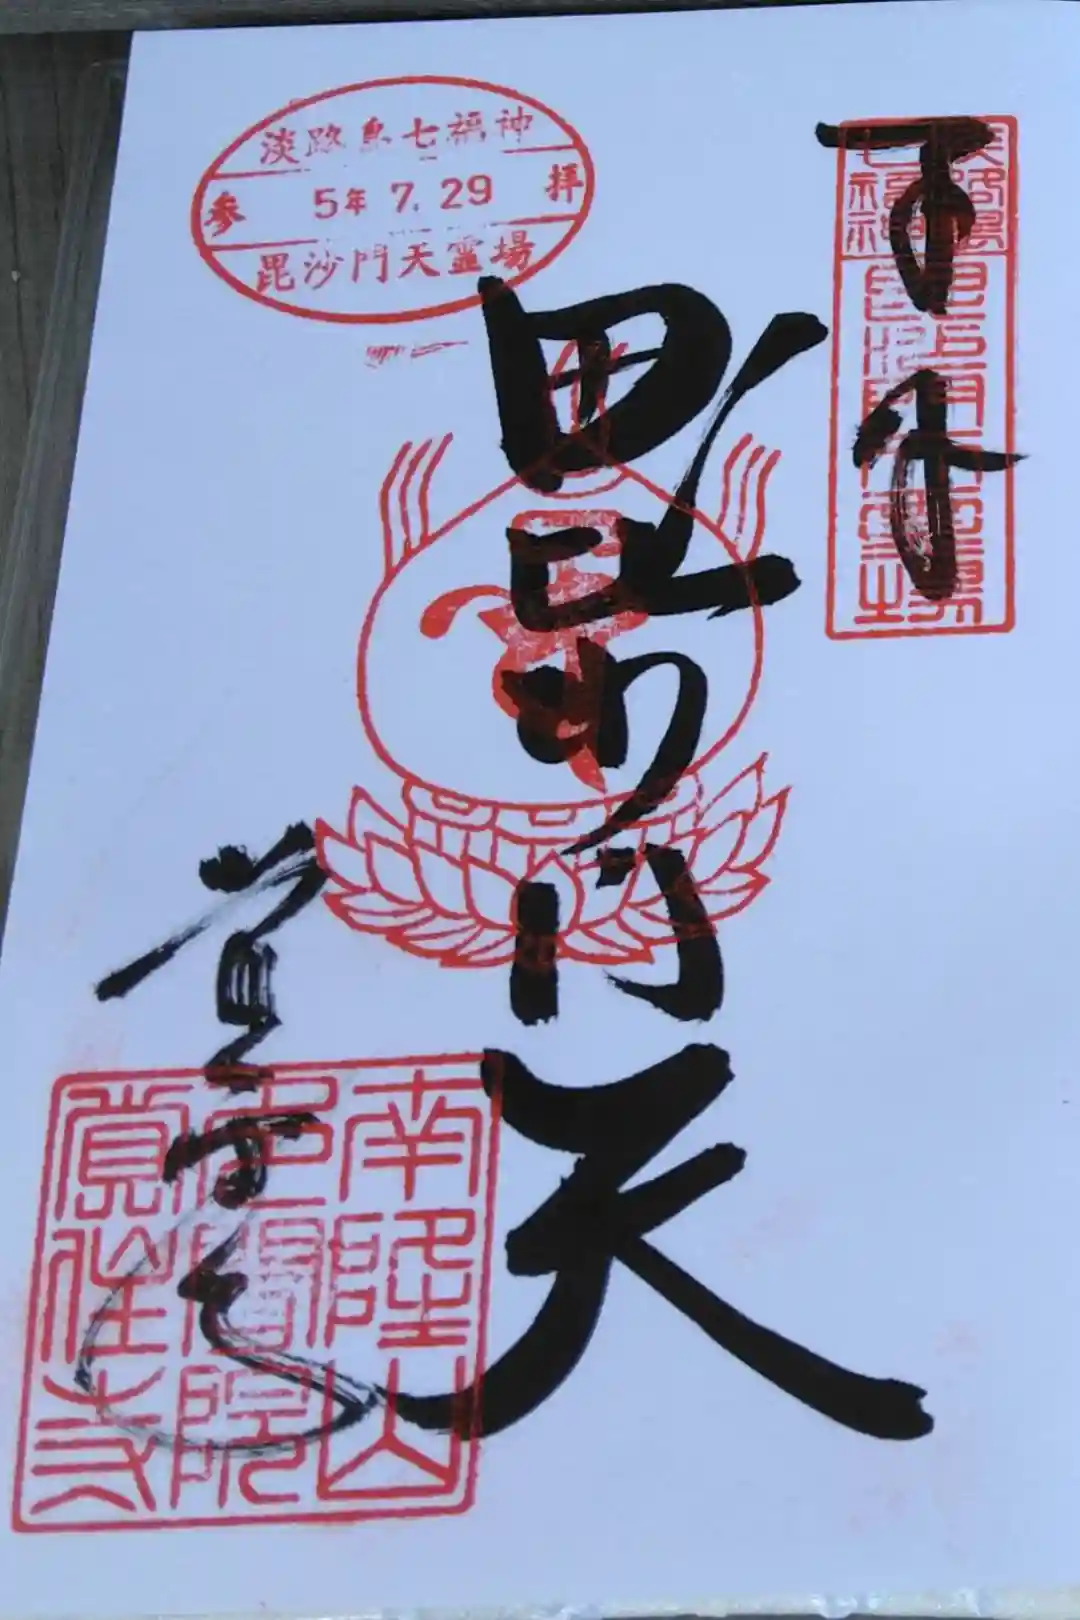 淡路島七福神
参 5年 7. 29 拝
毘沙門天霊場
奉拝
淡路島
七福神
毘沙門天霊場
毘沙門天
覚住寺
南陸山
院
覚住寺